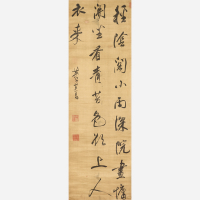 輕陰閣小雨深院晝慵
開坐看蒼苔色欲上人
衣来